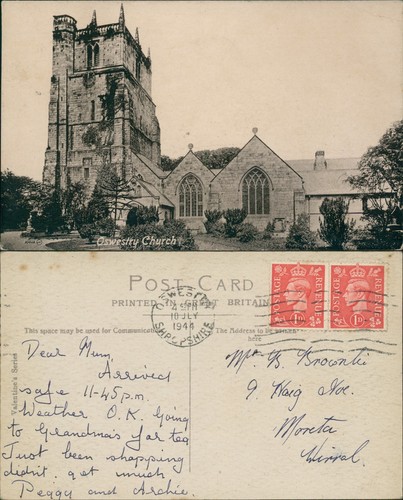 Oswestry Church
POST CARD
PRINTED IN GREAT BRITAIN
This space may be used for Communication
The Address to be written here
Valentine's Series
OSWESTRY
4 15 PM
18 JLY
1944
SHROPSHIRE
POSTAGE REVENUE
1D 1D
POSTAGE REVENUE
1D 1D
Dear Mum,
Arrived
safe 11-45 p.m.
Weather O.K. Going
to Grandma's for tea
Just been shopping
didn't get much
Peggy and Archie.
Mrs B.
9 Haig Ave.
Moreton
Wirral.